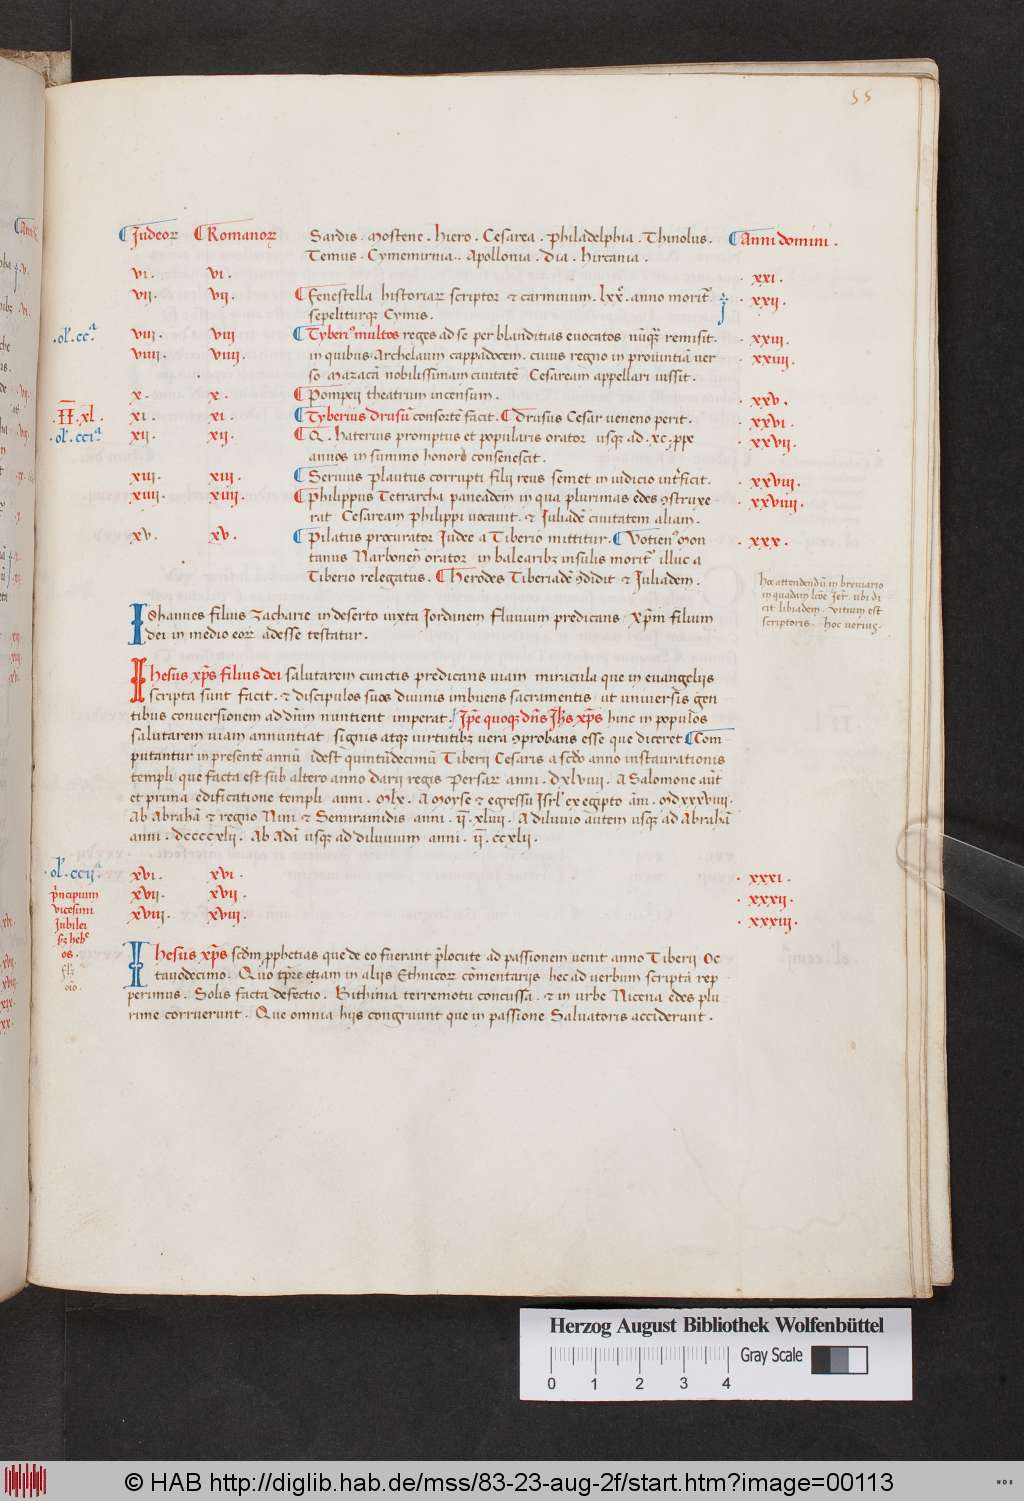 55
Judeoꝝ Romanoꝝ Sardis . Mostene . hiero . Cesarea . Philadelphia . Thinolus . Anni domini .
Temus . Cymemirnia . Apollonia . Dia . hircania .
vi . vi . xxi .
vii . vii . Fenestella historiaꝝ scriptor ⁊ carminum . lxxº. anno morit᷑ xxii .
sepeliturqꝫ Cymis .
ol'. ccª viii . viii Tyberiꝰ multos reges ad se per blanditias euocatos nūqꝫ remisit . xxiii .
viiii . viiii . in quibus Archelaum cappadocem . cuius regno in prouintiā uer xxiiii .
so Mazacā nobilissimam ciuitatē Cesaream appellari iussit .
x . x . Pompeii theatrum incensum . xxv .
II . xl . xi . xi . Tyberius drusū consortē facit . Drusus Cesar ueneno perit . xxvi .
ol'. cciª xii . xii . Q . haterius promptus et popularis orator usqꝫ ad . xc . ꝓpe xxvii .
annos in summo honore consenescit .
xiii . xiii . Seruius Plautus corrupti filii reus semet in iudicio int̄ficit . xxviii .
xiiii . xiiii . Philippus Tetrarcha paneadem in qua plurimas edes ꝯstruxe xxviiii .
rat Cesaream Philippi uocauit . ⁊ Iuliadē ciuitatem aliam .
xv . xv . Pilatus procurator Iudee a Tiberio mittitur . Votienꝰ Mon xxx .
tanus Narbonēn orator in balearibꝫ insulis morit᷑ illuc a
Tiberio relegatus . Herodes Tiberiadē ꝯdidit ⁊ Iuliadem .
hoc attendendū in breuiario
in quadam
cit libiadem . vitium est
scriptoris . hoc uerius .
Iohannes filius Zacharie in deserto iuxta Iordanem fluuium predicans xp̄m filium
dei in medio eoꝝ adesse testatur .
Ihesus xp̄s filius dei salutarem cunctis predicans uiam miracula que in euangeliis
scripta sunt facit . ⁊ discipulos suos diuinis imbuens sacramentis ut uniuersis gen
tibus conuersionem ad dūm nuntient imperat . Ip̄e quoqꝫ dn̄s Ih̄s xp̄s hinc in populos
salutarem uiam annuntiat signis atqꝫ uirtutibꝫ uera ꝯprobans esse que diceret Com
putantur in presentē annū idest quintūdecimū Tiberii Cesaris a scd̄o anno instaurationis
templi que facta est sub altero anno darii regis Persaꝝ anni . dxlviii . A Salomone aūt
et prima edificatione templi anni . Mlx . A Moyse ⁊ egressu Isrl' ex egipto āni . Mdxxxviiii .
Ab Abrahā ⁊ regno Nini ⁊ Semiramidis anni . ii . xliiii . A diluuio autem usqꝫ ad Abrahā
anni . dccccxlii . Ab Adā usqꝫ ad diluuium anni . ii . ccxlii .
ol'. cciiª xvi . xvi . xxxi .
p̄ncipium xvii . xvii . xxxii .
vicesimi xviii . xviii . xxxiii .
Jubilei
sꝫ hebͤ
os .
Ihesus xp̄s scdm̄ ꝓphetias que de eo fuerant p̄locute ad passionem uenit anno Tiberii Oc
tauodecimo . Quo tp̄re etiam in aliis Ethnicoꝝ cōmentariis hec ad uerbum scripta rep
perimus . Solis facta defectio . Bithinia terremotu concussa . ⁊ in urbe Nicena edes plu
rime corruerunt . Que omnia hiis congruunt que in passione Saluatoris acciderunt .
Herzog August Bibliothek Wolfenbüttel
Gray Scale
0 1 2 3 4
© HAB http://diglib.hab.de/mss/83-23-aug-2f/start.htm?image=00113